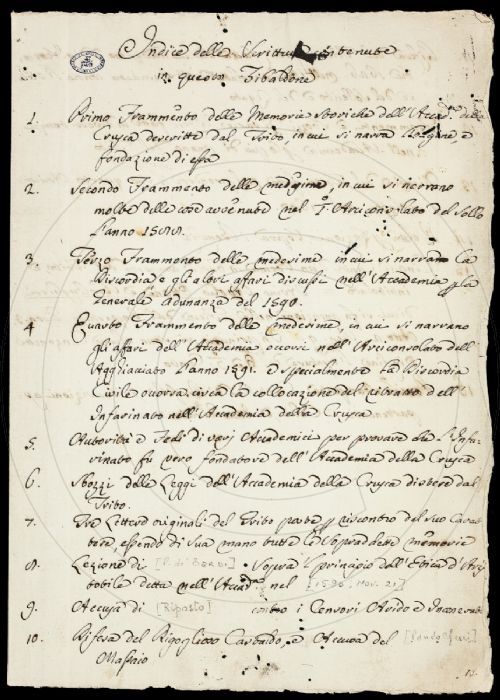 Indice delle Scritture contenute
in questo Zibaldone
1. Primo Frammento delle Memorie Storiche dell'Accad.a della
Crusca descritte dal Trito, in cui si narra l'origine, e
fondazione di essa
2. Secondo Frammento delle medesime, in cui si narrano
molte delle cose avvenute nel p.o Arciconsolato del Sollo
l'anno 1588.
3. Terzo Frammento delle medesime in cui si narrano la
Discordia e gli altri affari discussi nell'Accademia p la
Generale adunanza del 1590.
4 Quarto Frammento delle medesime, in cui si narrano
gli affari dell'Accademia occorsi nell'Arciconsolato dell'
Agghiacciato l'anno 1591. e specialmente la Discordia
Civile occorsa circa la collocazione del ritratto dell'
Infarinato nell'Accademia della Crusca
5. Autorità e Fedi di varj Accademici per provare che l'Infa-
rinato fu vero fondatore dell'Accademia della Crusca
6. Sbozzi delle Leggi dell'Accademia della Crusca distese dal
Trito.
7. Tre Lettere originali del Trito poste p riscontro del suo Carat-
tere, essendo di sua mano tutte le sopradette memorie
8. Lezione di Sopra il principio dell'Etica d'Aris-
totile detta nell'Accad.a nel [1590. Nov. 21]
9. Accusa di [Riposto] contro i Censori Arido e
10. Difesa del Rigoglioso Castaldo, e Accusa del
Massaio